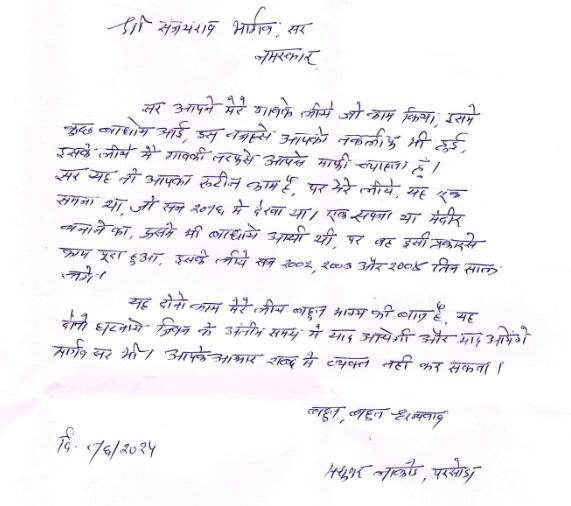 श्री संजयराव भार्गव, सर
नमस्कार,
सर आपने मेरे गावके लीये जो काम किया, इसमे
कुछ बाधाये आई, उस वजहसे आपको तकलीफ भी हुई,
इसके लीये मै गावकी तरफसे आपसे माफी चाहता हुं।
सर यह तो आपका रूटीन काम है, पर मेरे लीये, यह एक
सपना था, जो सन २०१६ मे देखा था। एक सपना था मंदीर
बनाने का, उसमे भी बाधाये आयी थी, पर वह इसी प्रकारसे
काम पूरा हुआ, इसके लीये सन २००२, २००३ और २००४ तिन साल
लगे।
यह दोनो काम मेरे लीये बहुत भाग्य की बात है, यह
दोनो घटनाये जिवन के अंतीम समय मे याद आयेगी और याद आयेंगे
भार्गव सर भी। आपके आभार शब्द मे व्यक्त नही कर सकता।
बहुत, बहुत धन्यवाद
दि. ८/६/२०२५
लाकडे, परसोडा